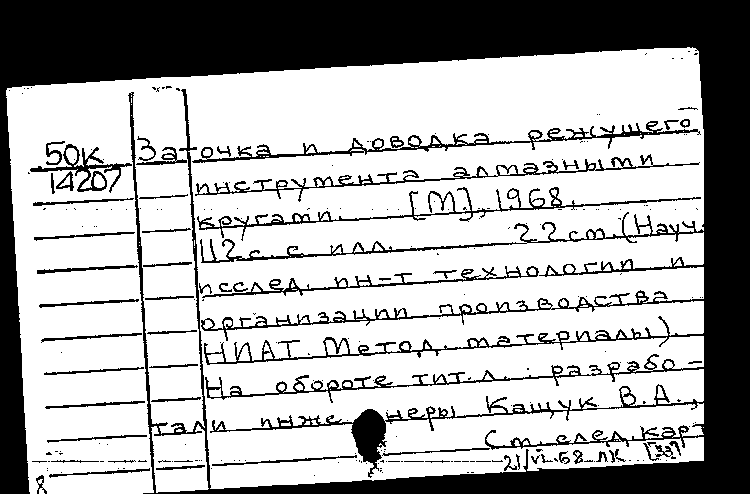 50К Заточка и доводка режущего
14207 инструмента алмазными
кругами. [М], 1968.
112 с. с илл. 22 см. (Науч.
исслед. ин-т технологии и
организации производства
НИАТ. Метод. материалы).
На обороте тит. л. : разрабо-
тали инже неры Кащук В.А.,
См. след. карт
21/VI-58 ЛК [33]
8